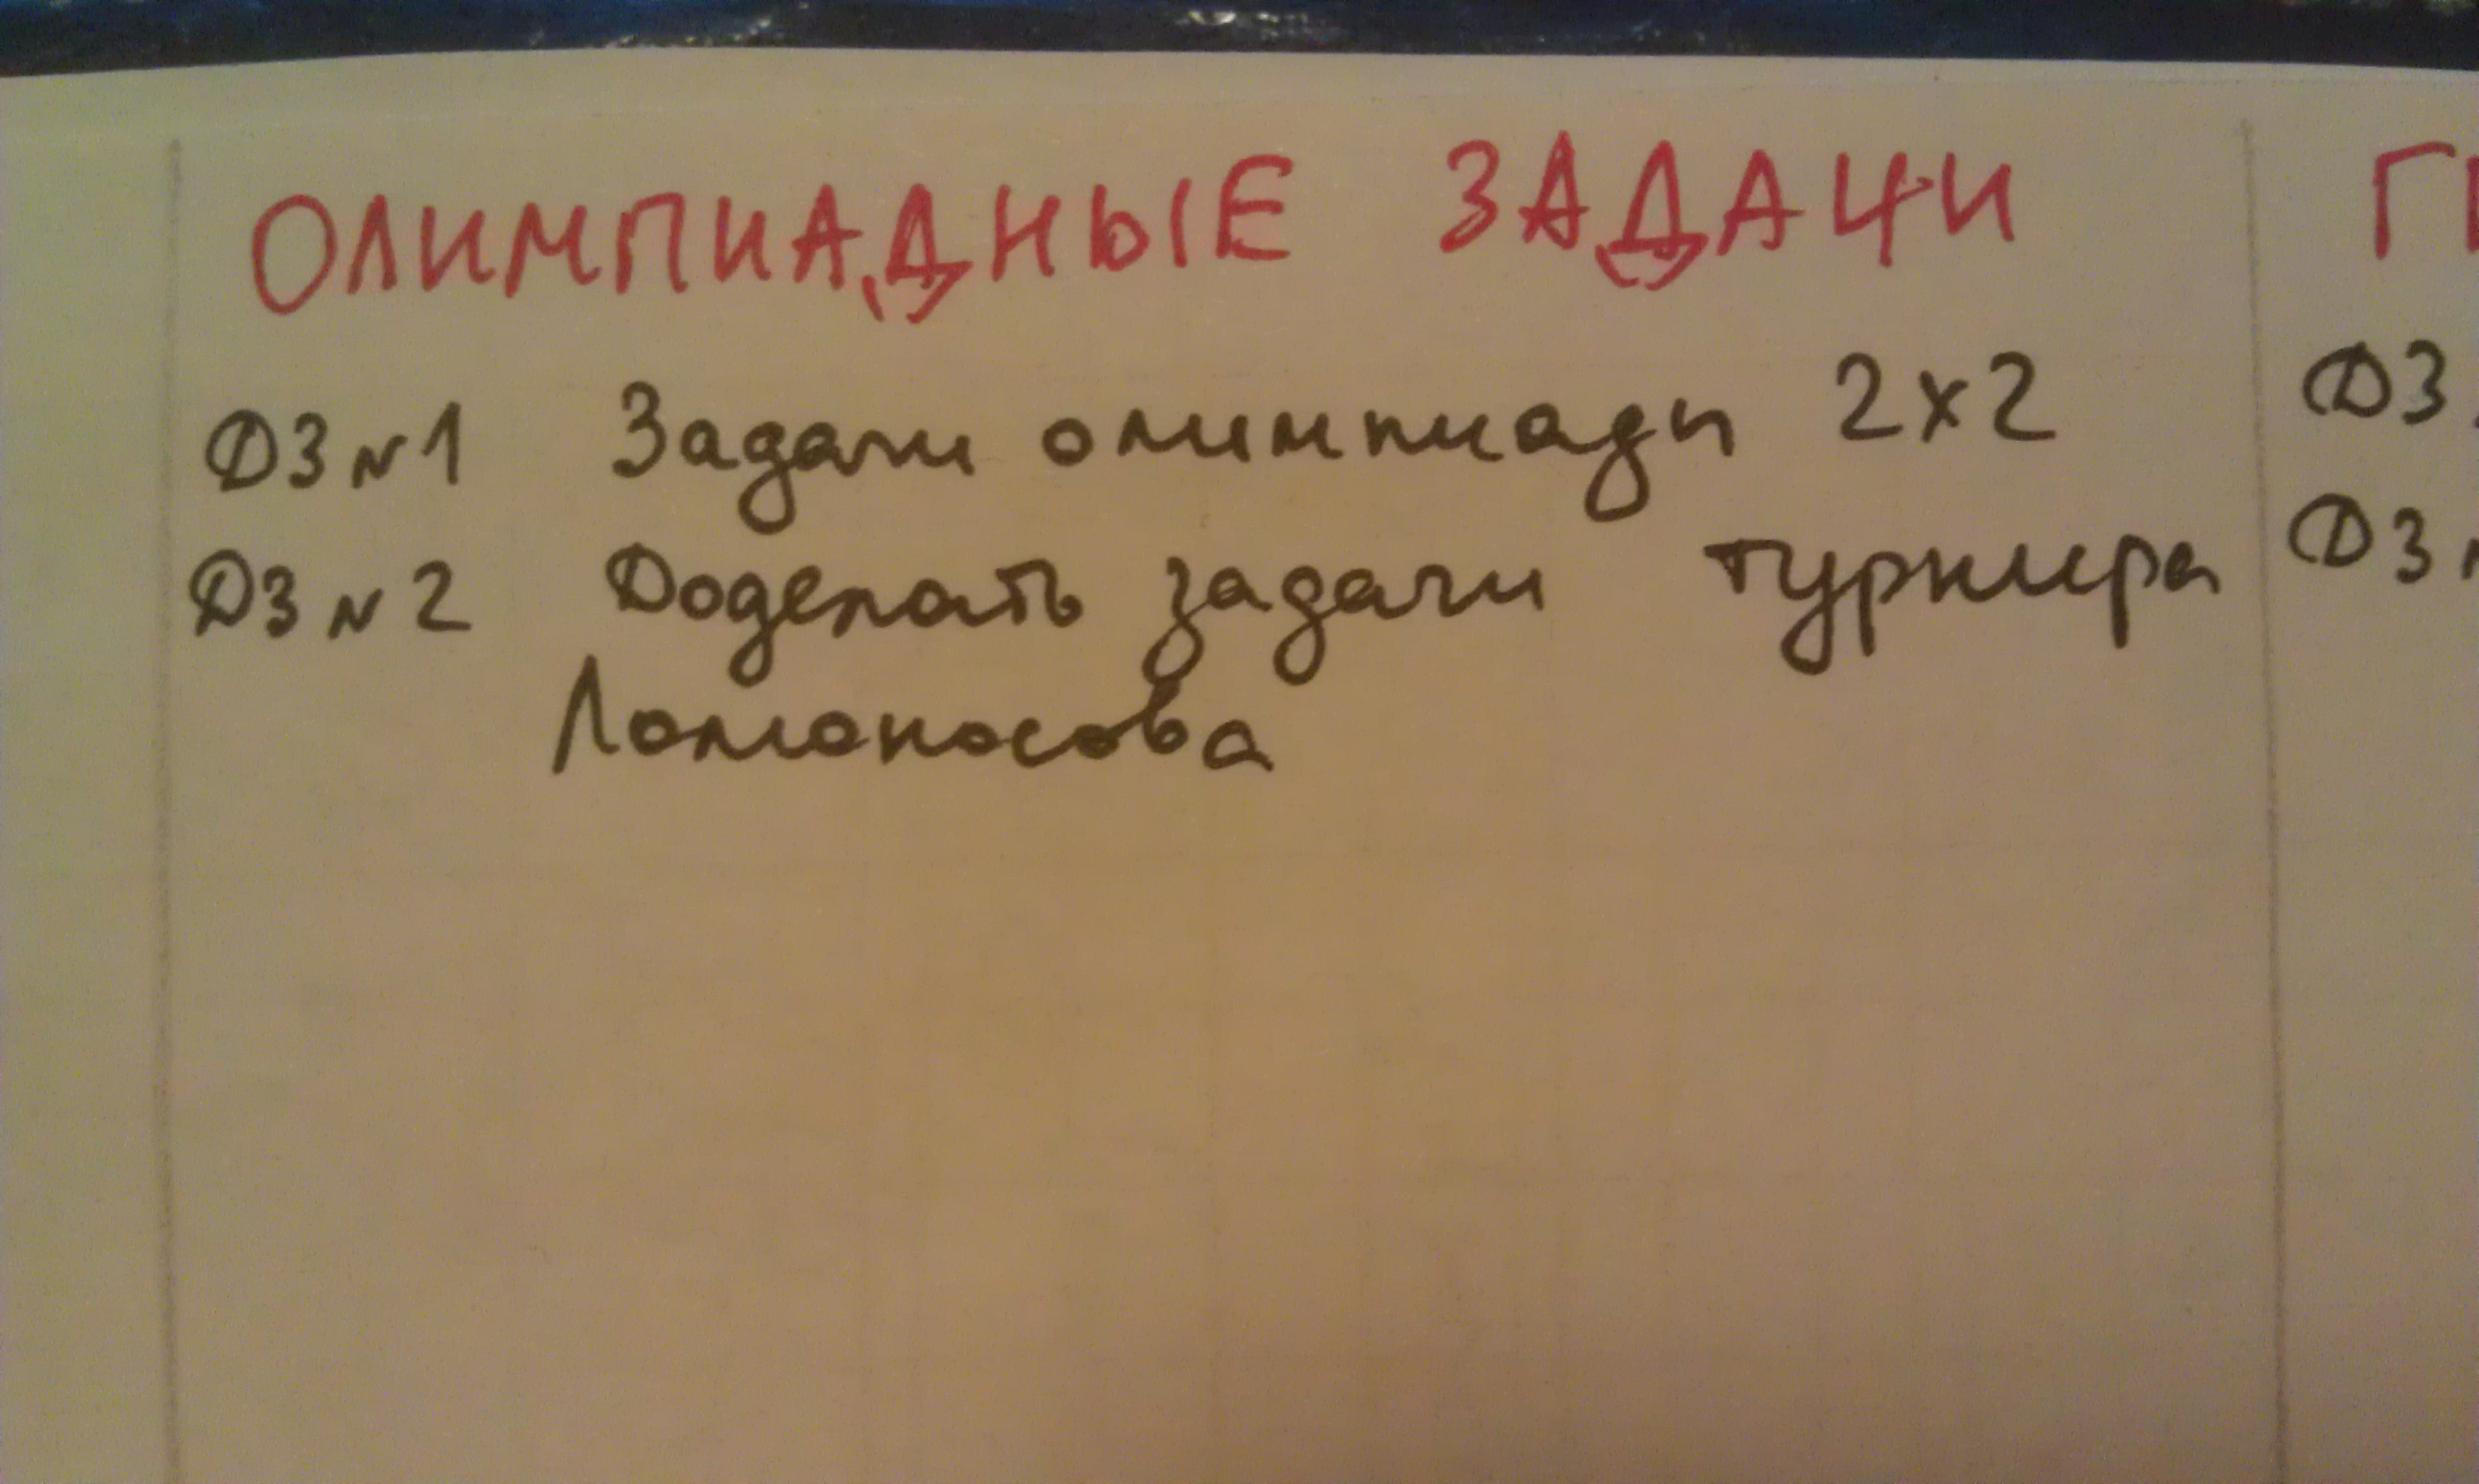 ОЛИМПИАДНЫЕ ЗАДАЧИ
ДЗ №1 Задачи олимпиады 2x2
ДЗ №2 Доделать задачи турнира
Ломоносова
ДЗ
ДЗ